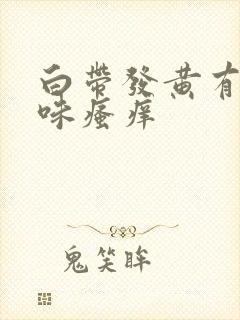 白帶發黃有
味瘙痒
鬼笑眸